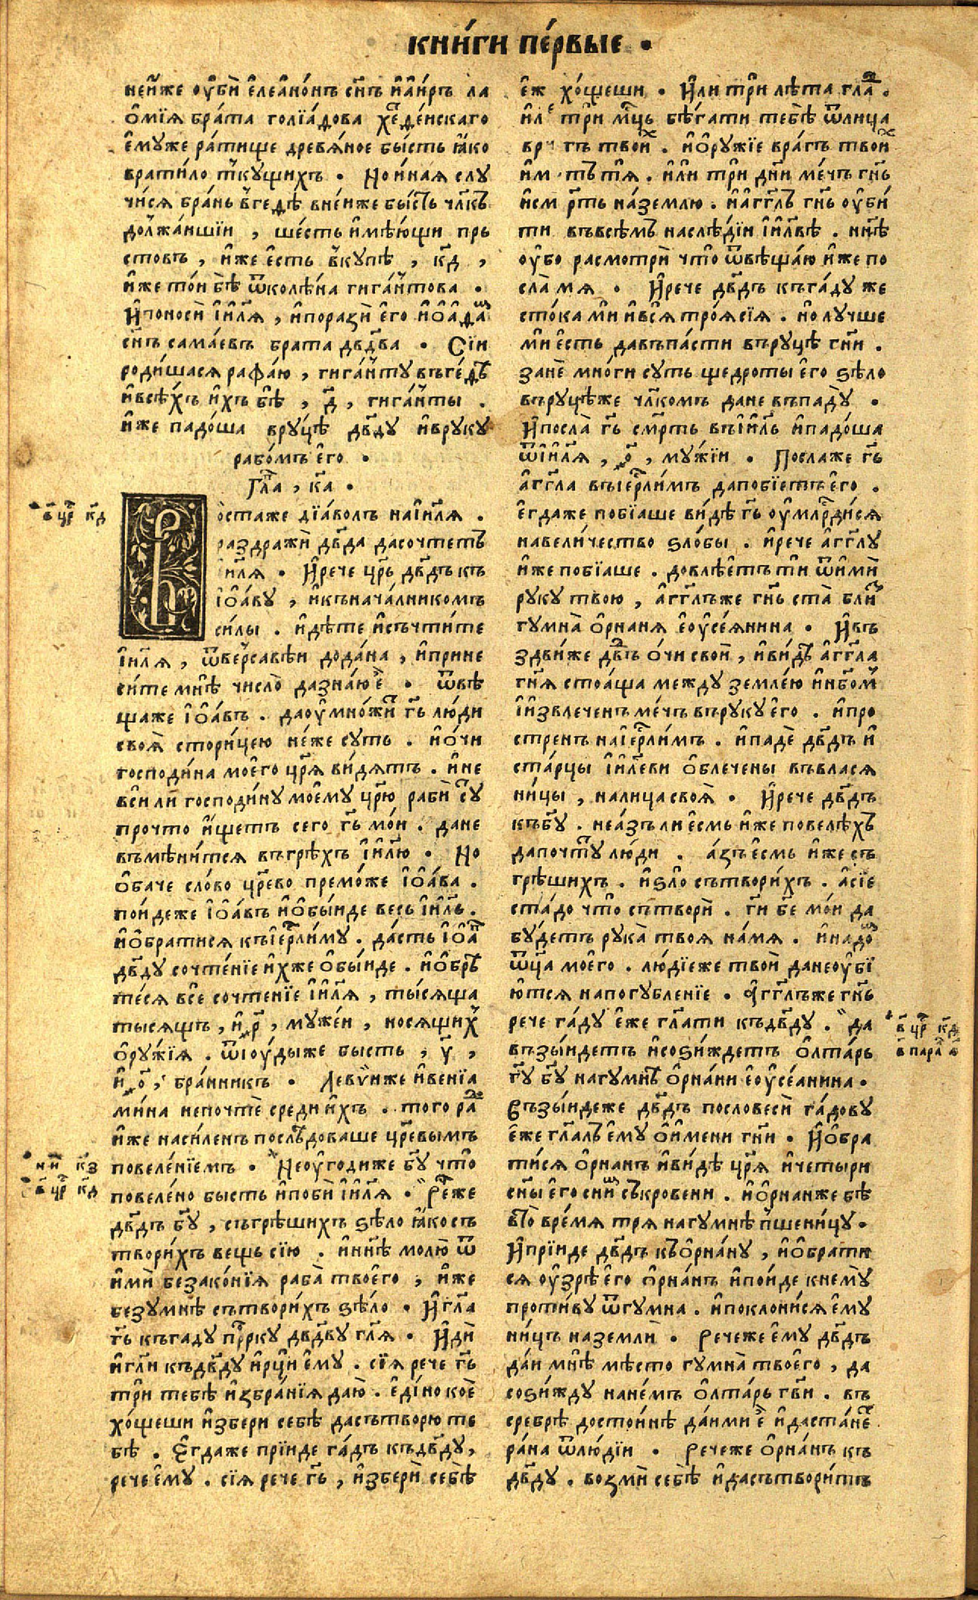 кни́ги пе́рвые •
нейже оубѝ елеано́нъ сн҃ъ иаи́ръ ла
оми́я бра́та голїа́дова хеде́йскаго
е́муже ра́тище древя́ное бы́сть ꙗ҆́ко
врати́ло ткущихъ • Но и́ная слу
чи́ся бра́нь вге́дѣ внейже бы́сть чл҃къ
должа́ишїи , ше́сть имѣ́ющи пръ
стовъ , и́же е́сть вку́пѣ , к҃д ,
и́же то́и бѣ̀ ѿколѣ́на гига́нтова •
И҆поносѝ і҆и҃ля , и҆поразѝ его̀ и҆оада́
сн҃ъ сама́евъ бра́та дв҃два • Сі́и
роди́шася рафа́ю , гига́нту въге́дѣ
и҆всѣ́хъ и҆́хъ бѣ̀ , д҃ , гига́нты .
и́же падо́ша вру́цѣ дв҃ду и҆вруку
рабо́мъ его̀ •
Гл҃а , к҃а .
в҃ цр҃ к҃д
Востаже дїа́волъ наі҆и҃ля .
раздражѝ дв҃да дасочте́тъ
і҆и҃ля • И҆рече цр҃ь дв҃дъ къ
і҆оа́ву , и҆къначалникомъ
си́лы . иди́те и҆съчти́те
і҆и҃ля , ѿверса́вѣи дода́на , и҆прине
си́те мнѣ̀ число̀ дазна́ю е҆̀ • ѿвѣ
щаже і҆оа́въ . даоумно́жи гь҃ лю́ди
своя̀ стори́цею не́же суть . и҆о́чи
господи́на моего цр҃я ви́дятъ . и҆не
вси ли господи́ну моему цр҃ю рабѝ су
прочто и҆́щетъ сего гь҃ мо́и . дане
въмѣни́тся въгрѣ́хъ і҆и҃лю • Но
оба́че сло́во цр҃ево премо́же і҆оа́ва .
пои́деже і҆оа́въ и҆обы́иде весь і҆и҃ль .
и҆обрати́ся къіер҃лиму . да́сть і҆оа́в
дв҃ду сочте́нїе и҆́хже обы́иде . и҆обрѣ
те́ся всѐ сочте́нїе і҆и҃ля , ты́сяща
тысящъ , и҆ , р҃ , муже́и , нося́щих
ору́жїя . ѿїоу́дыже бысть , у҃ ,
и҆ , о҃ , бра́нникъ • Леву́иже и҆венїа
ми́на непочтѐ средѝ и҆́хъ . того ра
и́же наси́ленъ послѣ́доваше цр҃евымъ
и҃и к҃з
повеле́нїемъ • Неоугоди́же бг҃у что̀
в҃ цр҃ к҃д
повеле́но бысть и҆побѝ і҆и҃ля • Ре́чже
дв҃дъ бг҃у , съгрѣши́хъ ѕѣло ꙗ҆́ко съ
твори́хъ вещь сїю̀ . и҆нн҃ѣ молю̀ ѿ
имѝ безако́нїя раба̀ твоего̀ , и́же
безу́мнѣ сътвори́хъ ѕѣ́ло • И҆гл҃а
гь҃ къгаду прр҃ку дв҃дву гл҃я . И҆дѝ
и҆гл҃и къдв҃ду и҆рци ему . сїя рече гь҃
трѝ тебѣ̀ избра́нїя даю̀ . еди́но коѐ
хо́щеши избери себѣ̀ дасътворю те
бѣ̀ . Егдаже прїиде га́дъ къдв҃ду ,
рече ему . сїя рече гь҃ , изберѝ себѣ̀
е́ж хо́щеши . И҆ли три лѣ́та гла́д .
и҆ли три мц҃ь бѣ́гати тебѣ̀ ѿлица
враг твоих . и҆ору́жїе вра́гъ твои
имѣтъ тя . и҆ли три дн҃и ме́чъ гн҃ь
и҆см рть на́землю . и҆агг҃лъ гн҃ь оуби
ти въвсемъ наслѣ́дїи і҆и҃лвѣ . нн҃ѣ
оубо расмотрѝ что̀ ѿвѣща́ю и́же по
сла̀ мя . И҆рече дв҃дъ къга́ду же
сто́ка ми и҆вся̀ троя̀сїя . но лучше
ми е́сть давъпа́сти въру́цѣ гн҃и .
занѐ мно́ги суть щедро́ты его̀ ѕѣло
въру́цѣже чл҃комъ дане въпаду •
И҆посла̀ гь҃ см҃рть въі҆и҃ль и҆падо́ша
ѿі҆и҃ля , о҃ , му́жїи • Послаже гь҃
агг҃ла въіер҃ли́мъ дапобїетъ его .
егдаже побїаше ви́дѣ гь҃ оумл҃рдися
навели́чество ѕло́бы . и҆рече агг҃лу
и́же побїаше . довлѣ́етъ ти ѿимѝ
руку твою , агг҃лъже гн҃ь ста̀ бли́з
гумна̀ о҆рнаня еоусе́янина • И҆въ
здви́же дв҃дъ о́чи своѝ , и҆ви́дѣ агг҃ла
гн҃я стоа́ща между земле́ю и҆нб҃ом
і҆извлече́нъ ме́чъ въру́ку его̀ . и҆про
стренъ наіер҃ли́мъ . и҆падѐ дв҃дъ и҆
ста́рцы і҆и҃леви облечены въвлася
ни́цы , налица своя̀ • И҆рече дв҃дъ
къбг҃у . неа́зъ ли е́смь и́же повелѣ́хъ
дапочту́ лю́ди . а́зъ е́смь и́же съ
грѣши́хъ . и҆ѕло̀ сътвори́хъ . а҆сїе
ста́до что̀ сътворѝ . гн҃и бж҃е мо́и да
бу́детъ рука̀ твоя на́мя . и҆надо́м
ѿц҃а моего . лю́дїеже твоѝ данеоубї
ю́тся напогубле́нїе • Агг҃лъже гн҃ь
в҃ цр҃ к҃д
рече га́ду е́же гл҃ати къдв҃ду . Да
в҃ пара г҃
въззы́идетъ и҆соѕи́ждетъ олта́рь
гд҃у бг҃у нагумнѣ̀ о҆рна́ни еоусе́анина •
Възы́идеже дв҃дъ пословеси га́дову
е́же гл҃алъ ему̀ о́имени гн҃и • И҆обра
ти́ся о҆рна́нъ и҆ви́дѣ цр҃я и҆четы́ри
сн҃ы его съни́м съкровени . и҆о҆рна́нже бѣ
вто̀ вре́мя тря̀ нагумнѣ пшени́цу •
И҆прїиде дв҃дъ къо҆рна́ну , и҆обрати
ся оузрѣ̀ его о҆рна́нъ и҆пои́де кнему
проти́ву ѿгумна . и҆поклони́ся ему
ни́цъ наземлѝ . Речеже ему дв҃дъ
да́и мнѣ мѣ́сто гумна̀ твоего , да
соѕи́жду нане́мъ олта́рь гв҃и . въ
сребрѣ̀ досто́инѣ да́ими ѐ и҆даста́не
ра́на ѿлю́дїи . Речеже о҆рна́нъ къ
дв҃ду . возмѝ себѣ и҆дасътвори́тъ